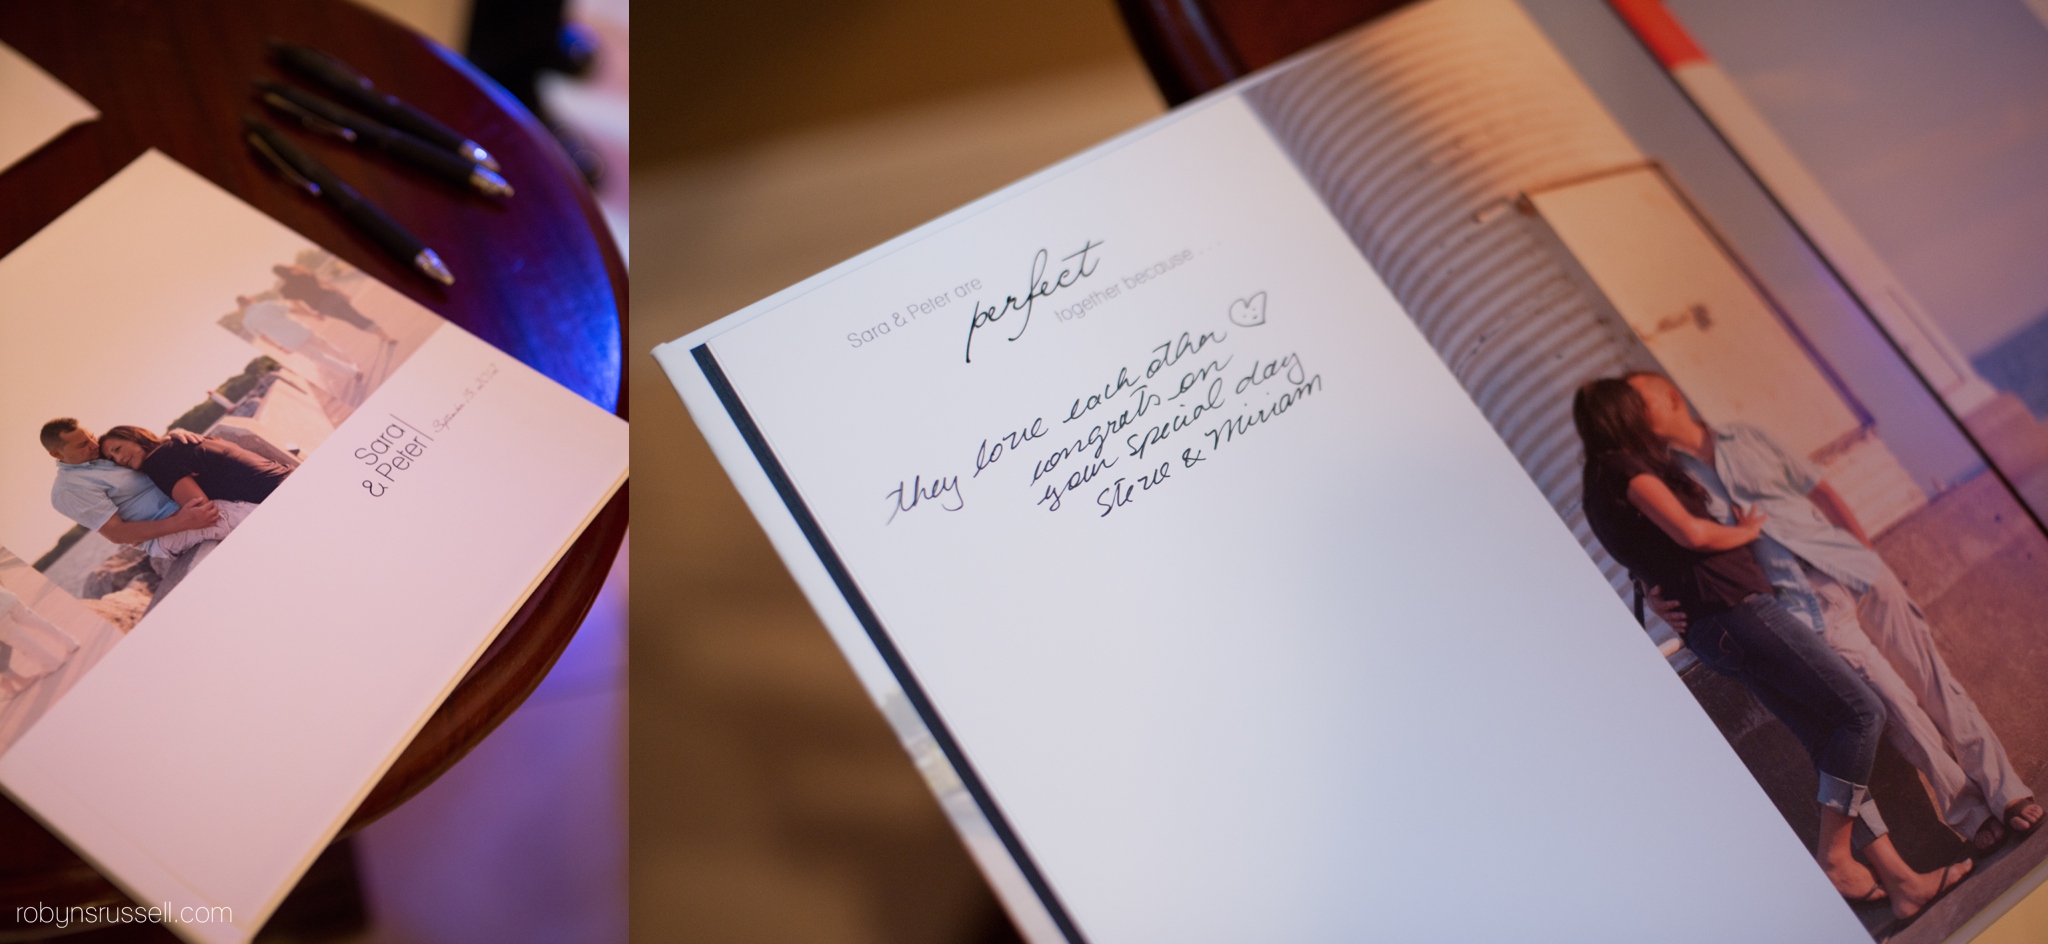 Sara
& Peter
September 15, 2012
Sara & Peter are
perfect
together because . . .
they love each other
congrats on
your special day
Steve & Miriam
robynsrussell.com